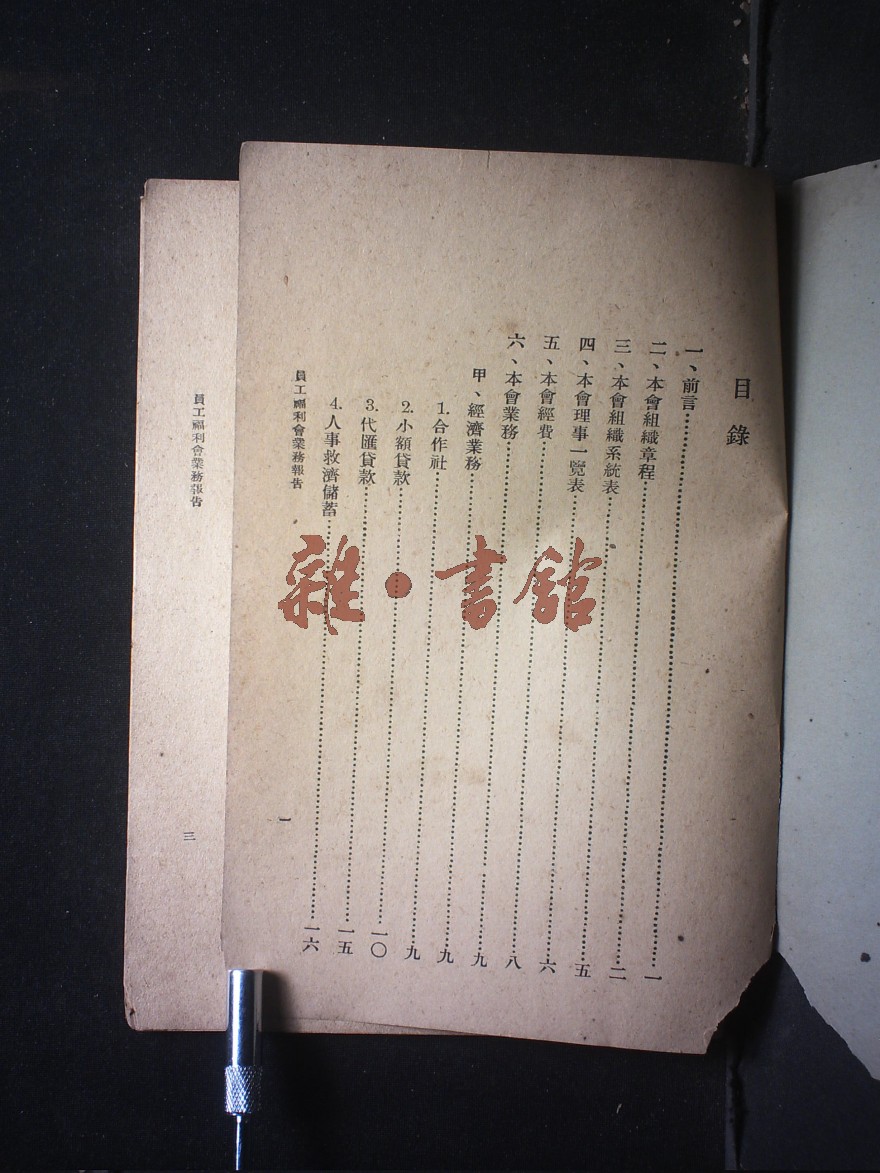 目錄
一、前言……一
二、本會組織章程……二
三、本會組織系統表……五
四、本會理事一覽表……六
五、本會經費……八
六、本會業務……九
甲、經濟業務……九
1.合作社……九
2.小額貸款……一〇
3.代匯貸款……一五
4.人事救濟儲蓄……一六
員工福利會業務報告
一
員工福利會業務報告
三
雜·書館